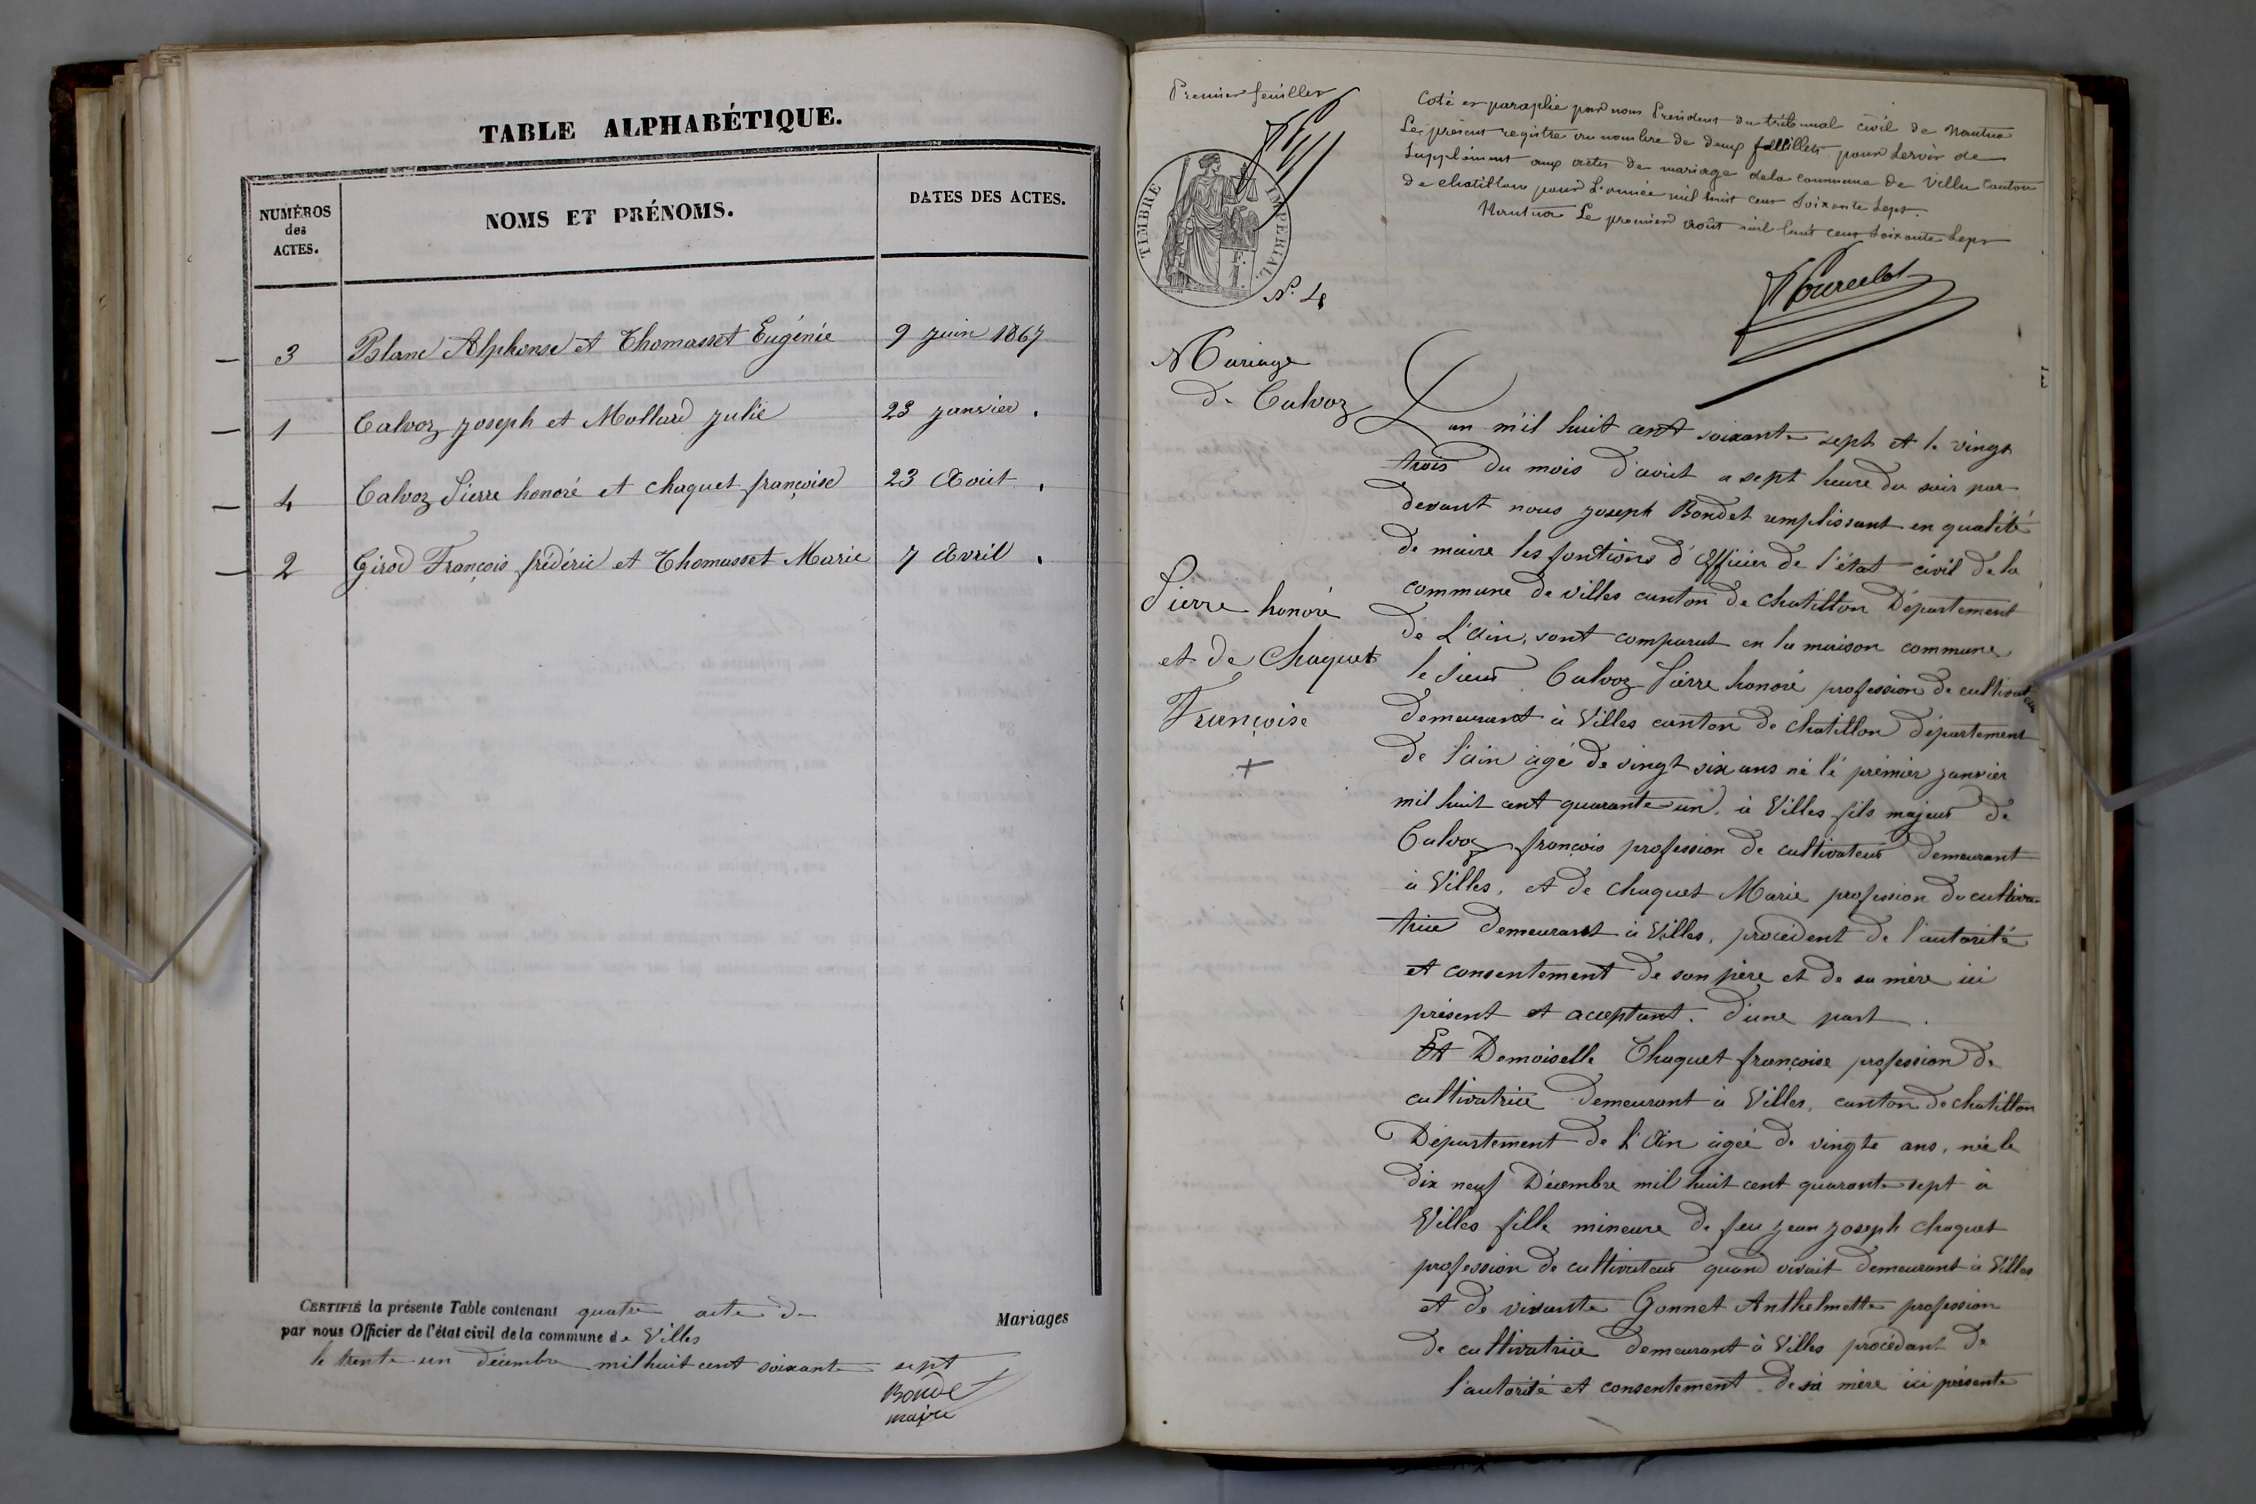 TABLE ALPHABÉTIQUE.
NUMÉROS des ACTES.
NOMS ET PRÉNOMS.
DATES DES ACTES.
3 Blanc Alphonse et Thomasset Eugénie 9 juin 1867
1 Calvoz joseph et Mollard julie 23 janvier.
4 Calvoz Pierre honoré et chaquet françoise 23 Aout.
2 Girod François frédéric et Thomasset Marie 7 Avril.
CERTIFIÉ la présente Table contenant quatre acte de Mariages
par nous Officier de l'état civil de la commune de Villes
le trente un décembre mil huit cent soixante sept
Bondet
maire
Premier feuillet
TIMBRE IMPÉRIAL.
N°. 4
Coté et paraphé par nous Président du tribunal civil de Nantua
Le présent registre au nombre de deux feuillets pour servir de
Supplément aux actes de mariage de la commune de Villes Canton
de Chatillon pour L'année mil huit cent Soixante Sept.
Nantua Le premier Août mil huit cent Soixante Sept
Mariage
de Calvoz
Pierre honoré
et de Chaquet
Françoise
L'an mil huit cent soixante sept et le vingt
trois du mois d'août a sept heure du soir par
devant nous joseph Bondet remplissant en qualité
de maire les fontions d'Officier de l'état civil de la
commune de villes canton de chatillon Département
de L'Ain, sont comparut en la maison commune
le sieur Calvoz Pierre honoré profession de cultivateur
demeurant à Villes canton de chatillon département
de l'ain âgé de vingt six ans né le prémier janvier
mil huit cent quarante un, à Villes fils majeur de
Calvoz françois profession de cultivateur demeurant
à Villes, et de chaquet Marie profession de cultiva-
trice demeurant à Villes, procédent de l'autorité
et consentement de son père et de sa mère ici
présent et acceptant. d'une part.
Et Demoiselle Chaquet françoise profession de
cultivatrice demeurant à Villes, canton de chatillon
Département de L'Ain âgée de vingte ans, née le
dix neuf Décembre mil huit cent quarante sept à
Villes fille mineure de feu jean joseph chaquet
profession de cultivateur quand vivait demeurant à Villes
et de vivante Gonnet Anthelmette profession
de cultivatrice demeurant à Villes procédant de
l'autorité et consentement de sa mère ici présente